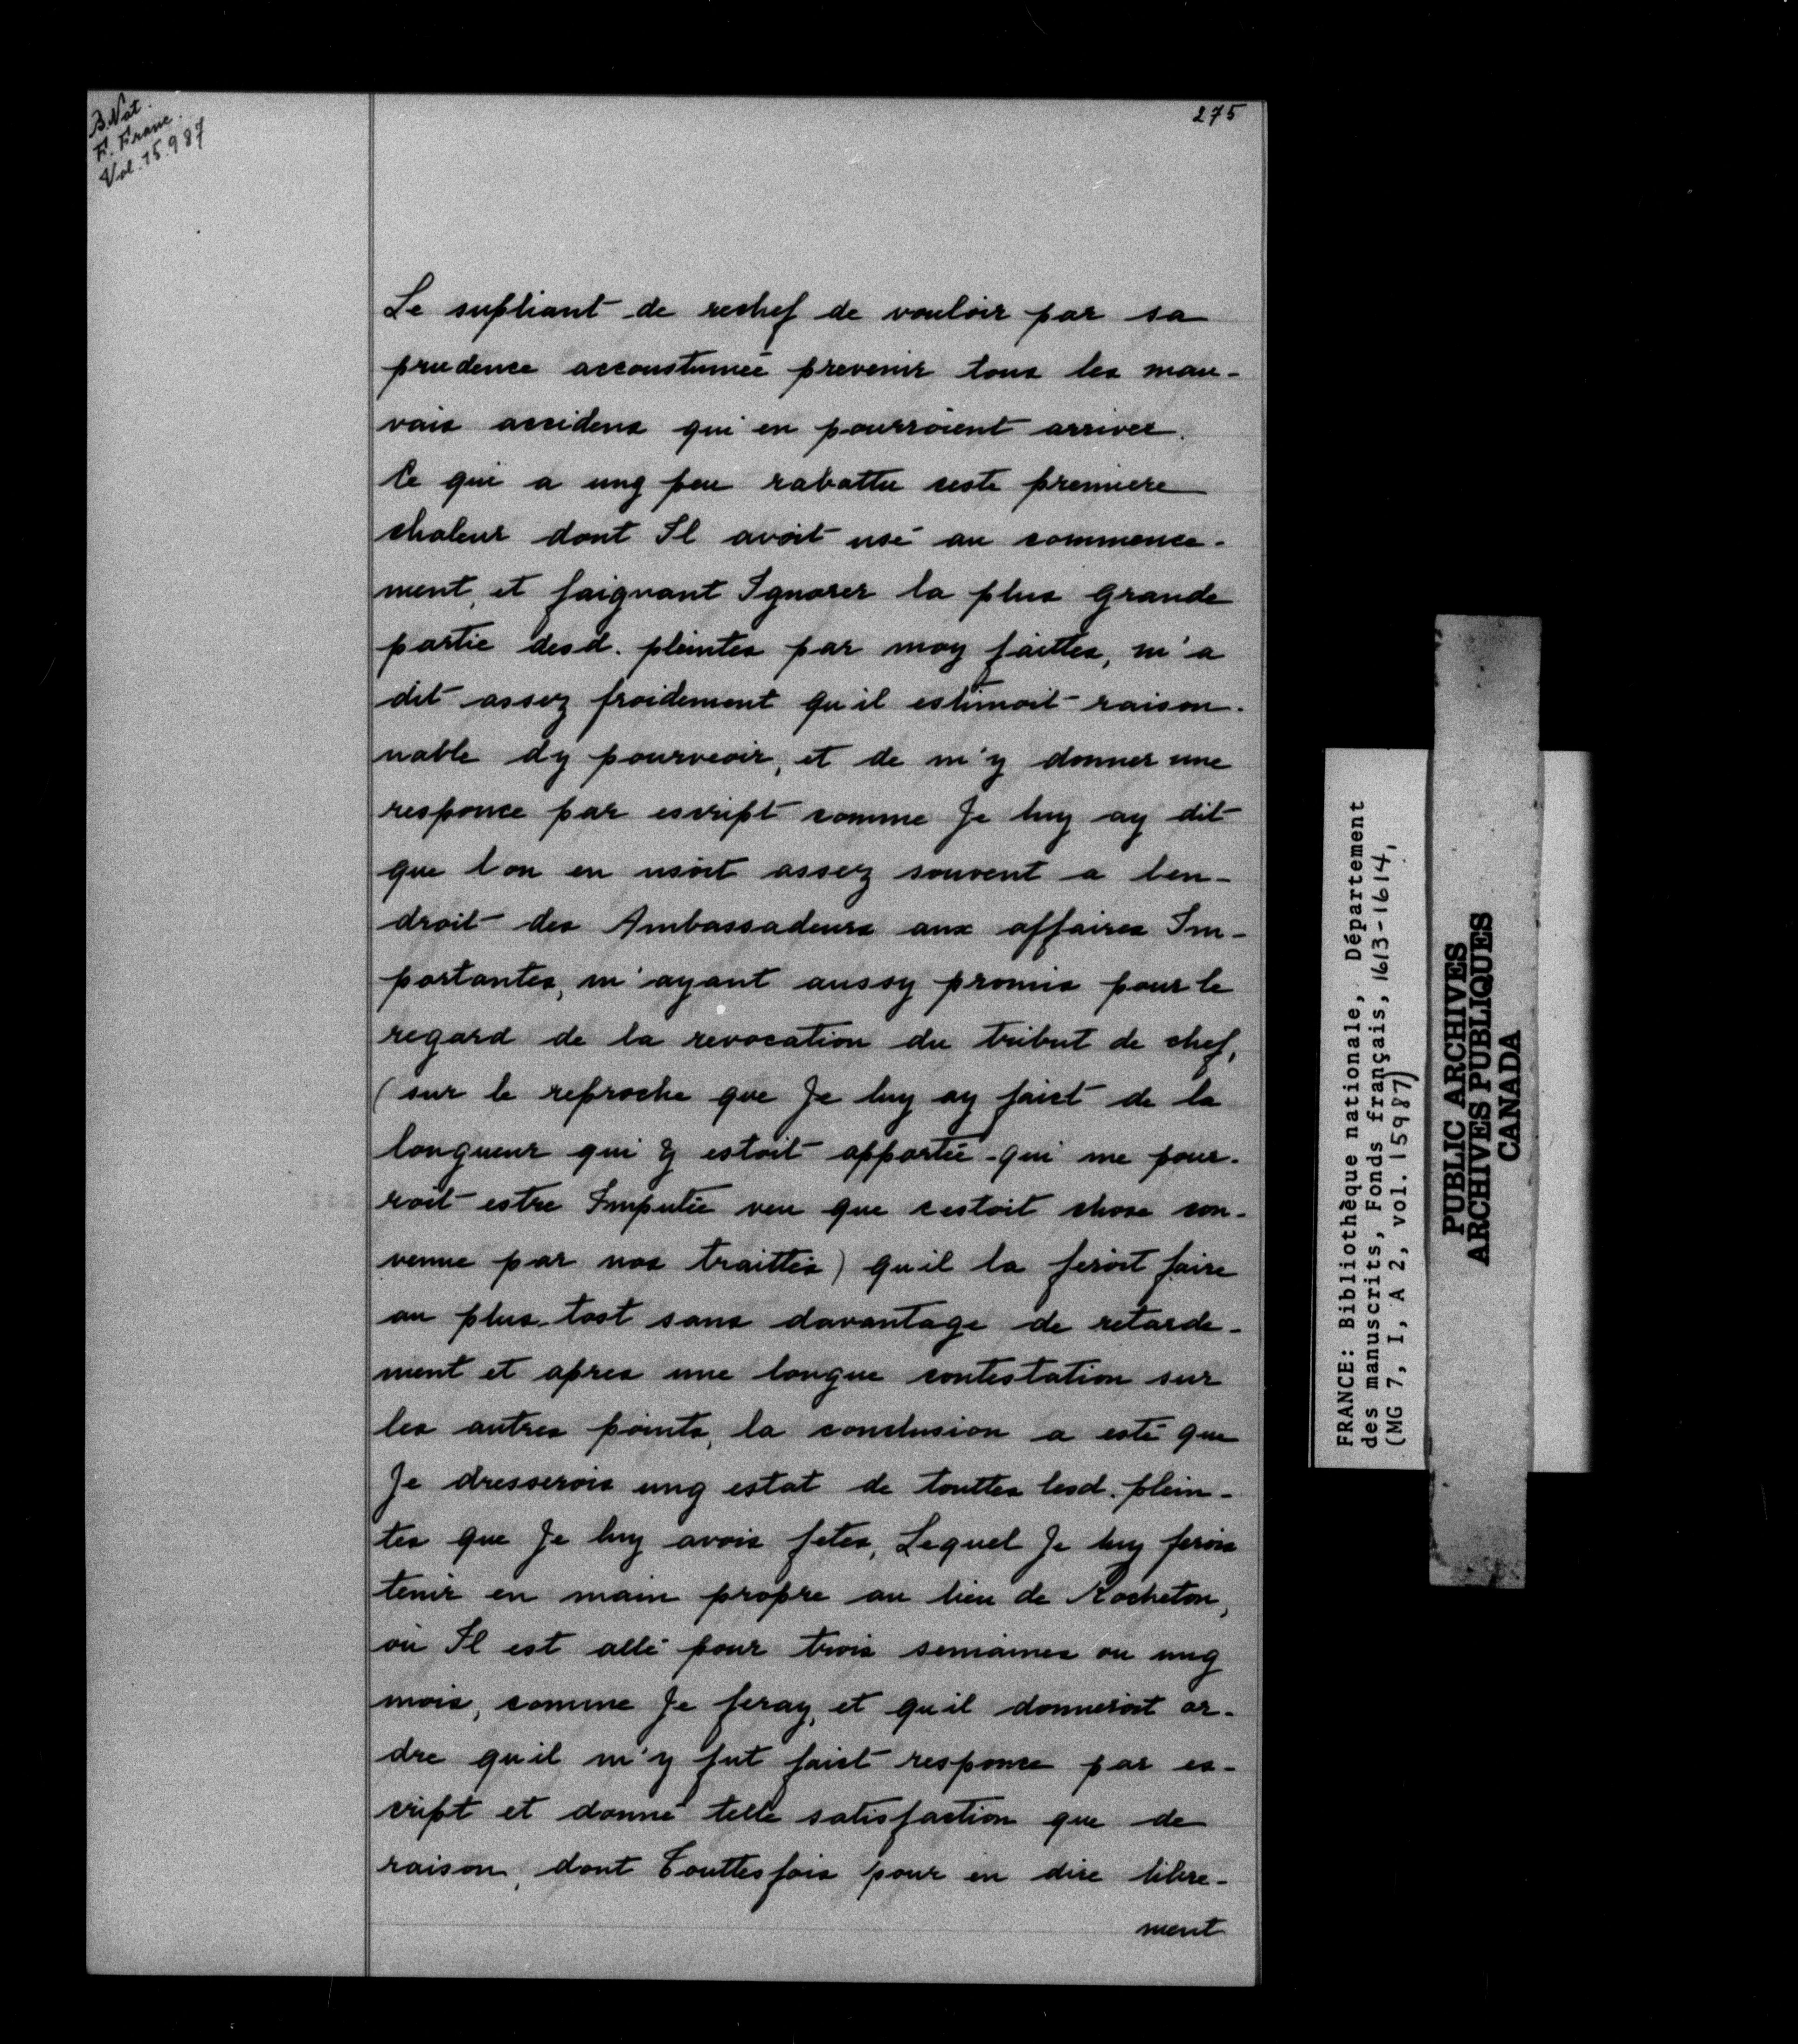 B. Nat.
F. Franc.
Vol. 15.987
275
Le supliant de rechef de vouloir par sa
prudence accoustumée prevenir tous les mau-
vais accidens qui en pourroient arriver.
Ce qui a ung peu rabattu ceste premiere
chaleur dont Il avoit usé au commence-
ment, et faignant Ignorer la plus grande
partie desd. pleintes par moy faittes, m'a
dit assez froidement qu'il estimoit raison-
nable dy pourveoir, et de m'y donner une
responce par escript comme Je luy ay dit
que l'on en usoit assez souvent a len-
droit des Ambassadeurs aux affaires Im-
portantes, m'ayant aussy promis pour le
regard de la revocation du tribut de chef,
(sur le reproche que Je luy ay faict de la
longueur qui y estoit apportée qui me pour-
roit estre Imputée veu que cestoit chose con-
venue par nos traittés) qu'il la feroit faire
au plus-tost sans davantage de retarde-
ment et apres une longue contestation sur
les autres points, la conclusion a esté que
Je dresserois ung estat de touttes lesd. plein-
tes que Je luy avois fetes, Lequel Je luy ferois
tenir en main propre au lieu de Rocheton,
où Il est allé pour trois semaines ou ung
mois, comme Je feray, et qu'il donneroit or-
dre qu'il m'y fut faict responce par es-
cript et donné telle satisfaction que de
raison, dont Touttesfois pour en dire libre-
ment
FRANCE: Bibliothèque nationale, Département
des manuscrits, Fonds français, 1613-1614,
(MG 7, I, A 2, vol. 15987)
PUBLIC ARCHIVES
ARCHIVES PUBLIQUES
CANADA